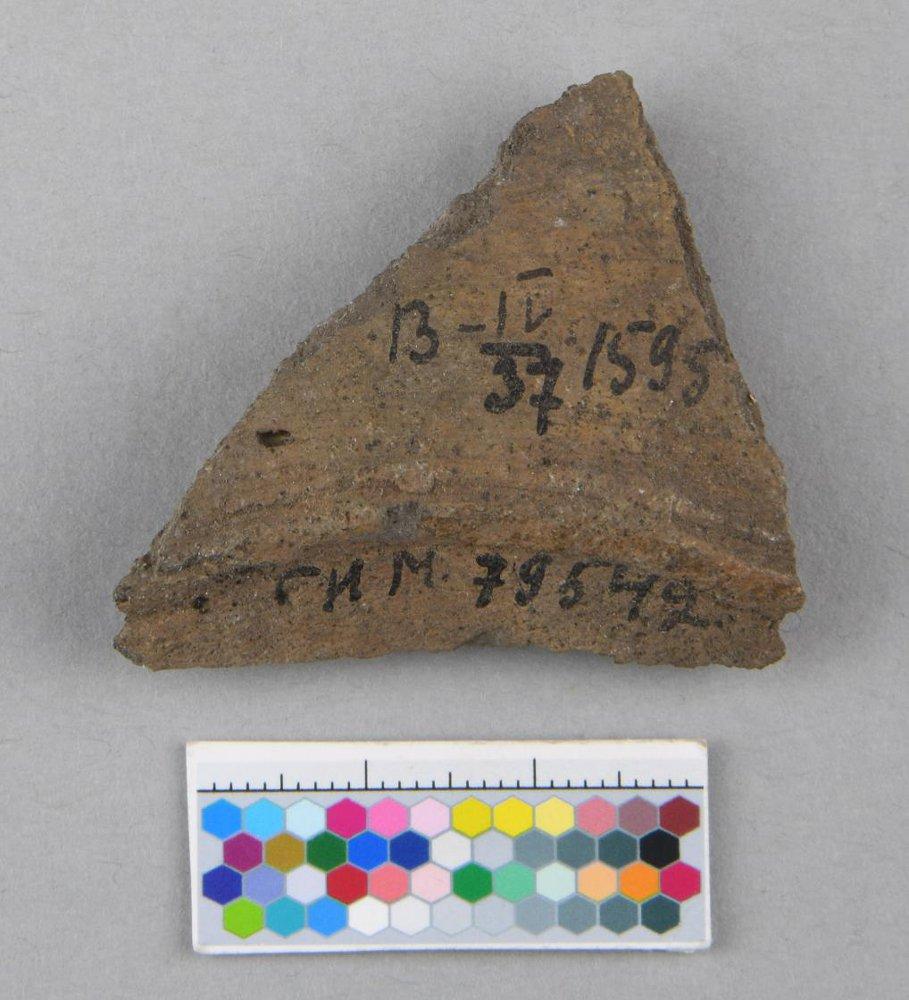 В-IV/37 1595
ГИМ. 79542.